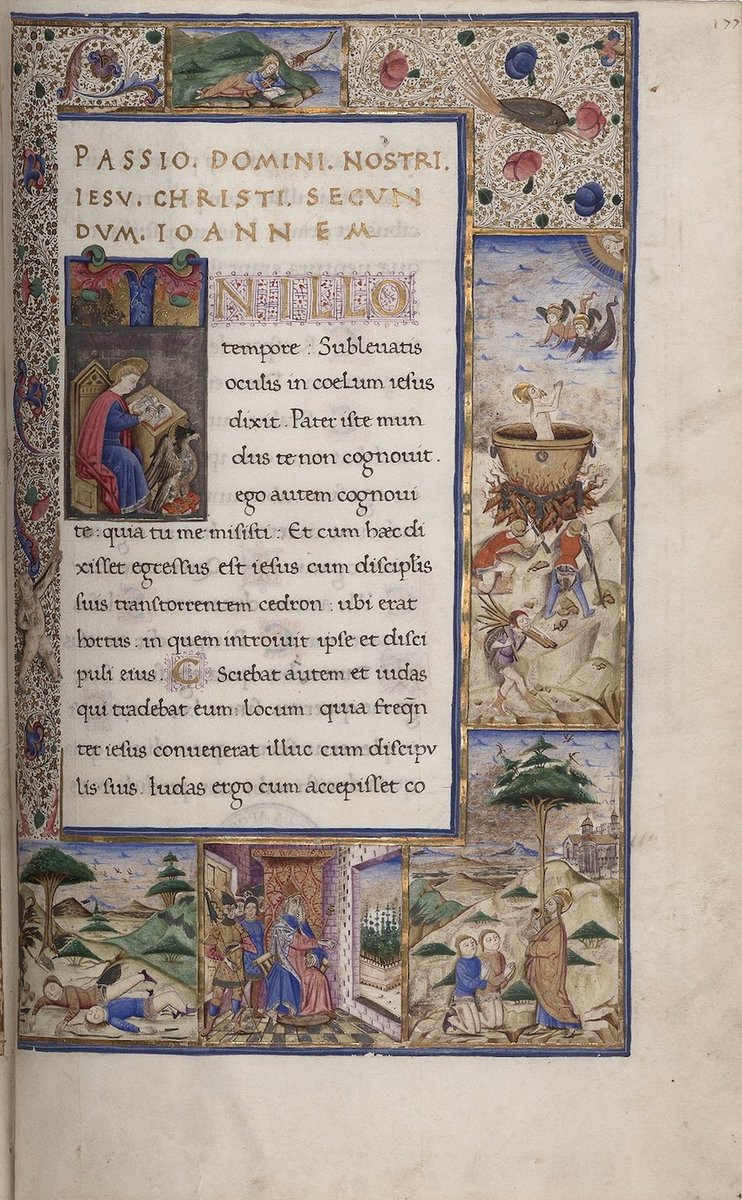 177
PASSIO. DOMINI. NOSTRI.
IESV. CHRISTI. SECVN
DVM. IOANNEM
IN ILLO
tempore : Subleuatis
oculis in coelum iesus
dixit. Pater iste mun
dus te non cognouit.
ego autem cognoui
te: quia tu me misisti: Et cum haec di
xisset egressus est iesus cum discipulis
suis trans torrentem cedron: ubi erat
hortus. in quem introiuit ipse et disci
puli eius. C Sciebat autem et iudas
qui tradebat eum: locum. quia freq̄n
ter iesus conuenerat illuc cum discipu
lis suis. Iudas ergo cum accepisset co